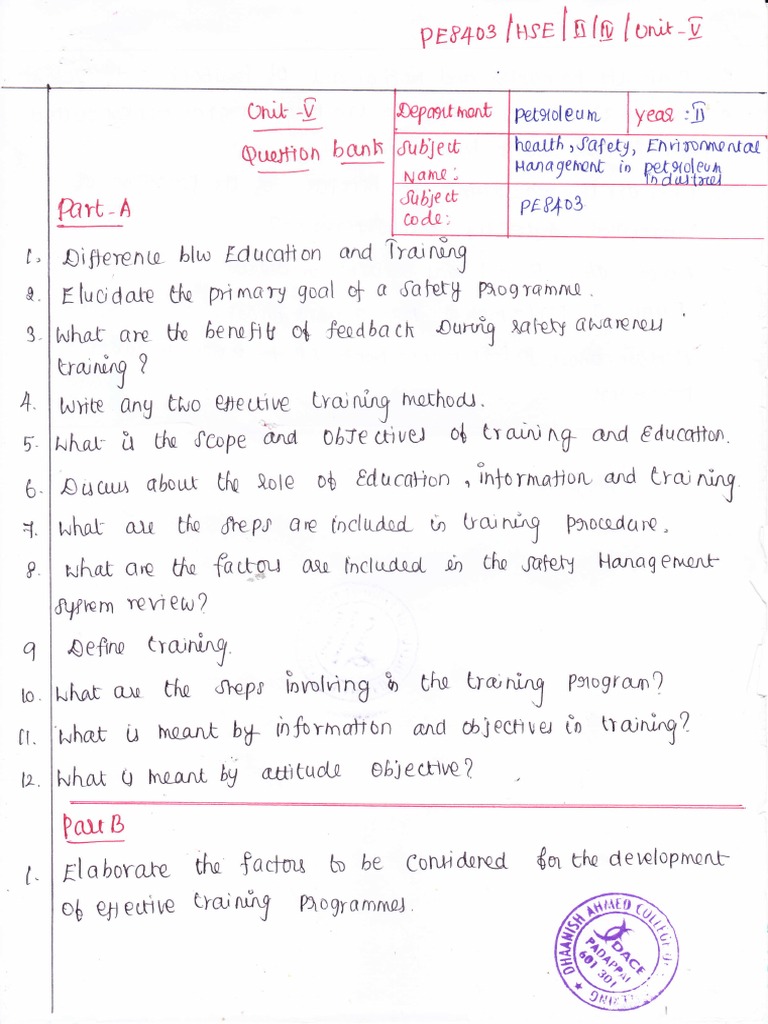 PE8403/HSE/II/IV/Unit-V
Unit-V
Question bank
Department
petroleum
year : II
Subject Name:
health, Safety, Environmental Management in petroleum Industries
Subject Code:
PE8403
Part-A
1. Difference b/w Education and Training
2. Elucidate the primary goal of a safety programme.
3. What are the benefits of feedback During safety awareness
training?
4. Write any two effective training methods.
5. What is the scope and objectives of training and Education.
6. Discuss about the role of Education, information and training.
7. What are the steps are included in training procedure.
8. What are the factors are included in the safety Management
system review?
9 Define training.
10. What are the steps involving in the training program?
11. What is meant by information and objectives in training?
12. What is meant by attitude objective?
Part B
1. Elaborate the factors to be considered for the development
of effective training programmes.
DHAANISH AHMED COLLEGE OF
DACE
PADAPPAI
601 301